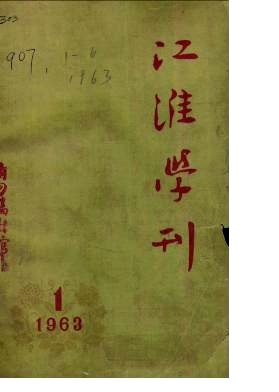 303
907, 1-6
, 1963
江淮学刊
1
1963